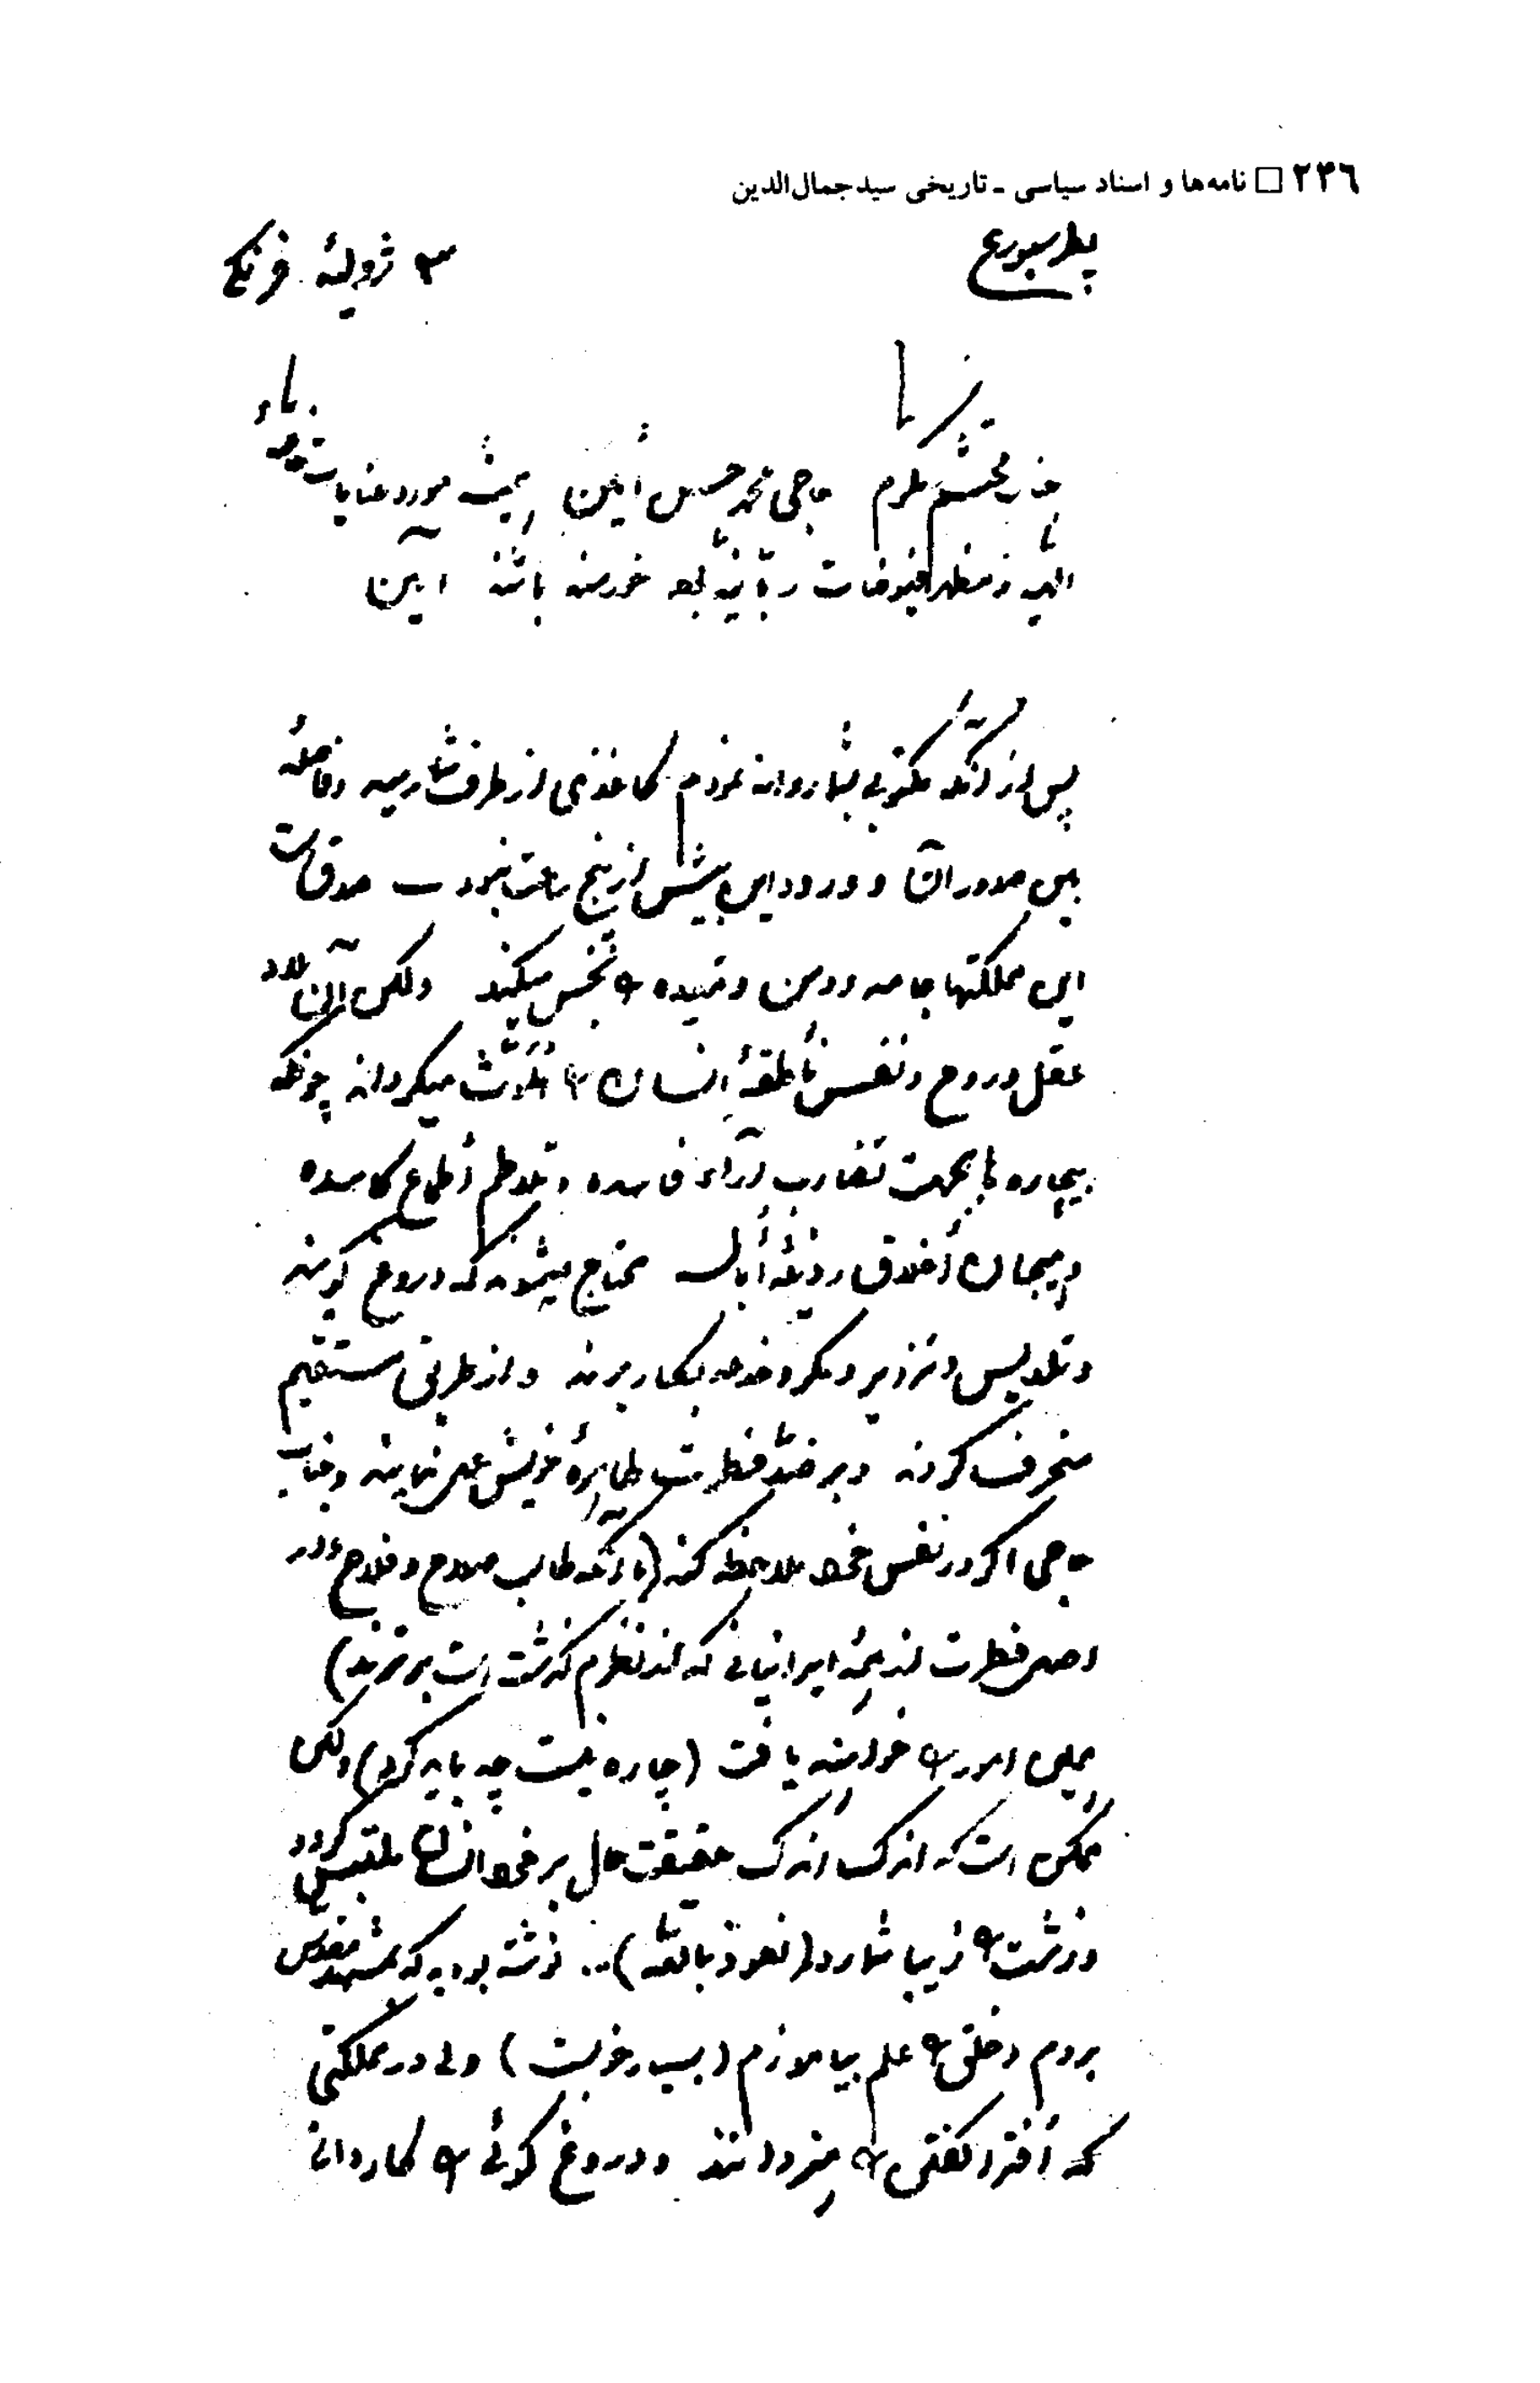 ۲۳۶ □ نامه‌ها و اسناد سیاسی - تاریخی سید جمال‌الدین
پطرسبورغ
۳ ژولیهٔ فرنگی
جناب محتشم مکرم حاجی محمد حسن أمین همیشه مورد عنایات
الهیه و مظهر فیوضات ربّانیه بوده خورسند باشند آمین
پس از آنکه مکتوبی بشما روانه نمودم کاغذی از طرف شما رسید و فاصلهٔ
بین صدور آن و ورود این بیش از پنج ساعت نبود
این مملکتها جامه و دمن و قمیده را نجس میکنند ولکن آن بلاد
عقل و روح و نفس ناطقهٔ انسان را ملوّث میگرداند چونکه
بیچاره‌ها بجهت تضارب آراء فاسده و تلاطم أطماع کاسده
و هیجان أخلاق رذیلهٔ أباله محتاج میشوند که دروغ گویند
و تلبیس و تزویر و مکر و خدعه بکار برند و از طریق مستقیم
منحرف گردند و بر ضدّ فطرت طاهرهٔ خویش عمل نمایند و جناب
حاجی اگر در نفس خود ملاحظه کند (با آنکه طالب صلاح و فلاح و در
اصل فطرت از همهٔ ایرانیانی که از نظرم گذشته است برترند)
همین امور را خواهند یافت (چاره نیست چه باید کرد) ولکن
ممکن است که اندک اندک حقیقت حال بر خود انسان ملتبس گردد
و زشت را زیبا شمارد (نعوذ بالله).. نوشته بودید که بمشهد مقدس
بروم و خلق را علم بیاموزم (بسیار خوبست) ولی در مملکتی
که أفترا گفتن را هنر دانند و دروغ گوئی را کاردانی